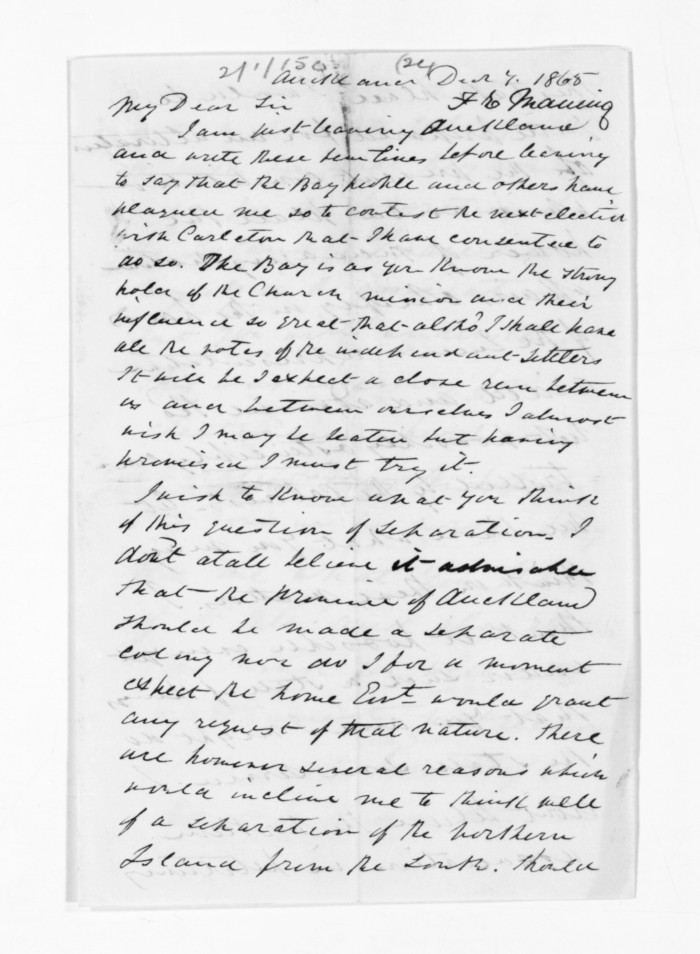 21/1/150 (24)
Auckland Decr 7. 1865
My Dear Sir F E Maning
I am just leaving Auckland
and write these few lines before leaving
to say that the Bay people and others have
plagued me so to contest the next election
with Carleton that I have consented to
do so. The Bay is as you know the strong
hold of the Church mission and their
influence so great that altho' I shall have
all the votes of the independant settlers
it will be I expect a close run between
us and between ourselves I almost
wish I may be beaten but having
promised I must try it.
I wish to know what you think
of this question of separation. I
don't atall believe it advisable
that the province of Auckland
should be made a separate
colony nor do I for a moment
expect the home Govt would grant
any request of that nature. There
are however several reasons which
would incline me to think well
of a separation of the northern
Island from the south. Should